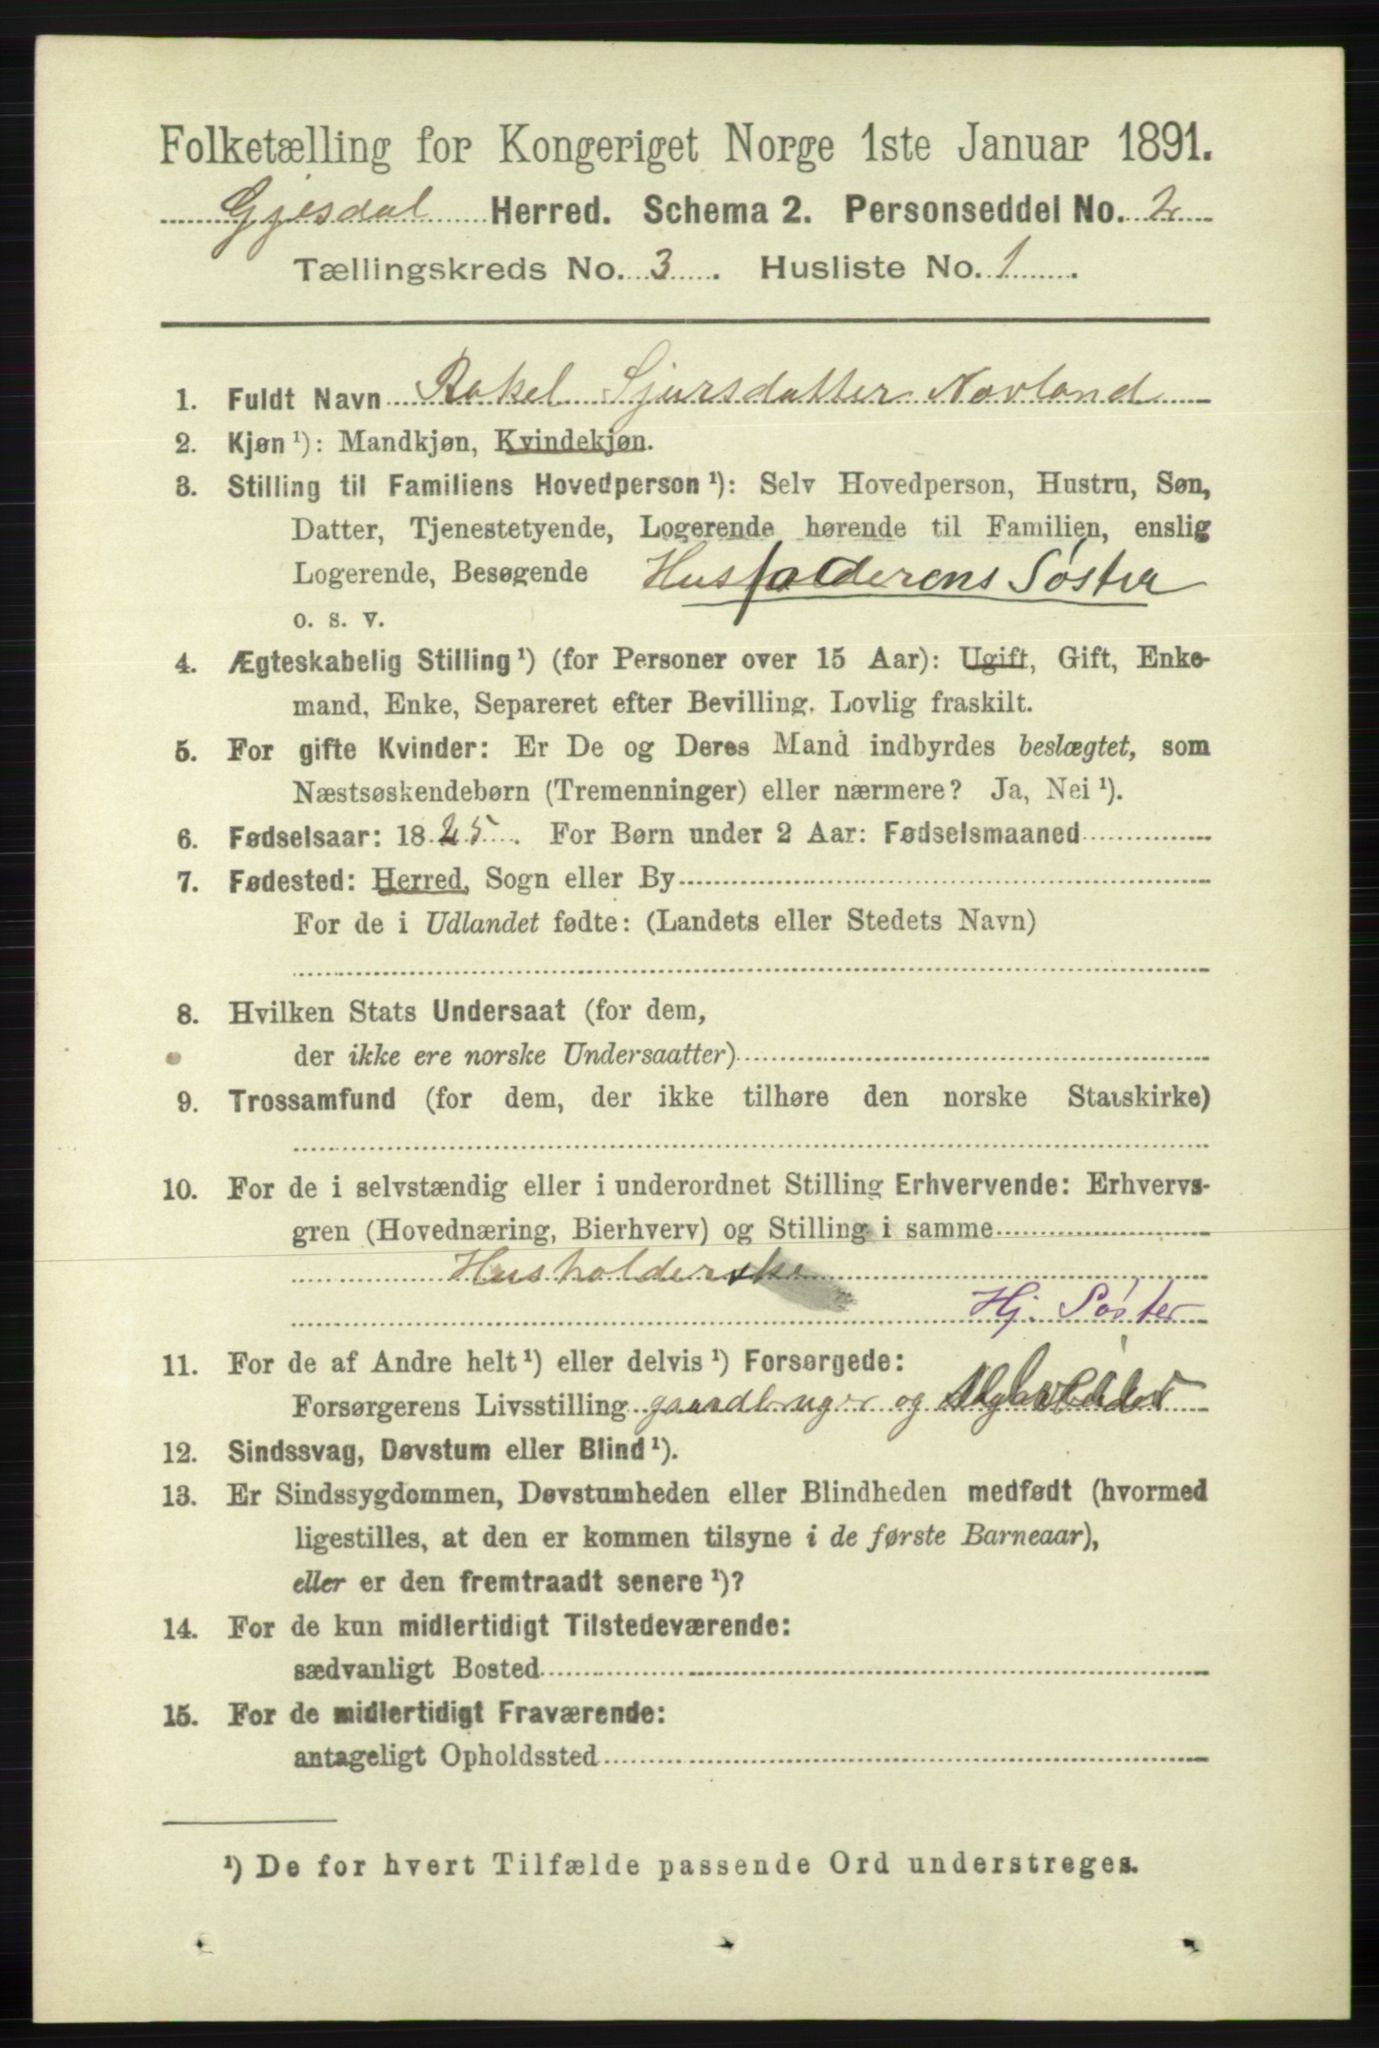 Folketælling for Kongeriget Norge 1ste Januar 1891.
Gjesdal Herred. Schema 2. Personseddel No. 2
Tællingskreds No. 3. Husliste No. 1.
1. Fuldt Navn Rakel Sjursdatter Novland
2. Kjøn ¹): Mandkjøn, Kvindekjøn.
3. Stilling til Familiens Hovedperson ¹): Selv Hovedperson, Hustru, Søn,
Datter, Tjenestetyende, Logerende hørende til Familien, enslig
Logerende, Besøgende Husfaderens Søster
o. s. v.
4. Ægteskabelig Stilling ¹) (for Personer over 15 Aar): Ugift, Gift, Enke-
mand, Enke, Separeret efter Bevilling. Lovlig fraskilt.
5. For gifte Kvinder: Er De og Deres Mand indbyrdes beslægtet, som
Næstsøskendebørn (Tremenninger) eller nærmere? Ja, Nei ¹).
6. Fødselsaar: 1825. For Børn under 2 Aar: Fødselsmaaned
7. Fødested: Herred, Sogn eller By
For de i Udlandet fødte: (Landets eller Stedets Navn)
8. Hvilken Stats Undersaat (for dem,
der ikke ere norske Undersaatter)
9. Trossamfund (for dem, der ikke tilhøre den norske Statskirke)
10. For de i selvstændig eller i underordnet Stilling Erhvervende: Erhvervs-
gren (Hovednæring, Bierhverv) og Stilling i samme
Husholderske
Hj. Søster
11. For de af Andre helt ¹) eller delvis ¹) Forsørgede:
Forsørgerens Livsstilling gaardbruger og
12. Sindssvag, Døvstum eller Blind ¹).
13. Er Sindssygdommen, Døvstumheden eller Blindheden medfødt (hvormed
ligestilles, at den er kommen tilsyne i de første Barneaar),
eller er den fremtraadt senere ¹)?
14. For de kun midlertidigt Tilstedeværende:
sædvanligt Bosted
15. For de midlertidigt Fraværende:
antageligt Opholdssted
¹) De for hvert Tilfælde passende Ord understreges.